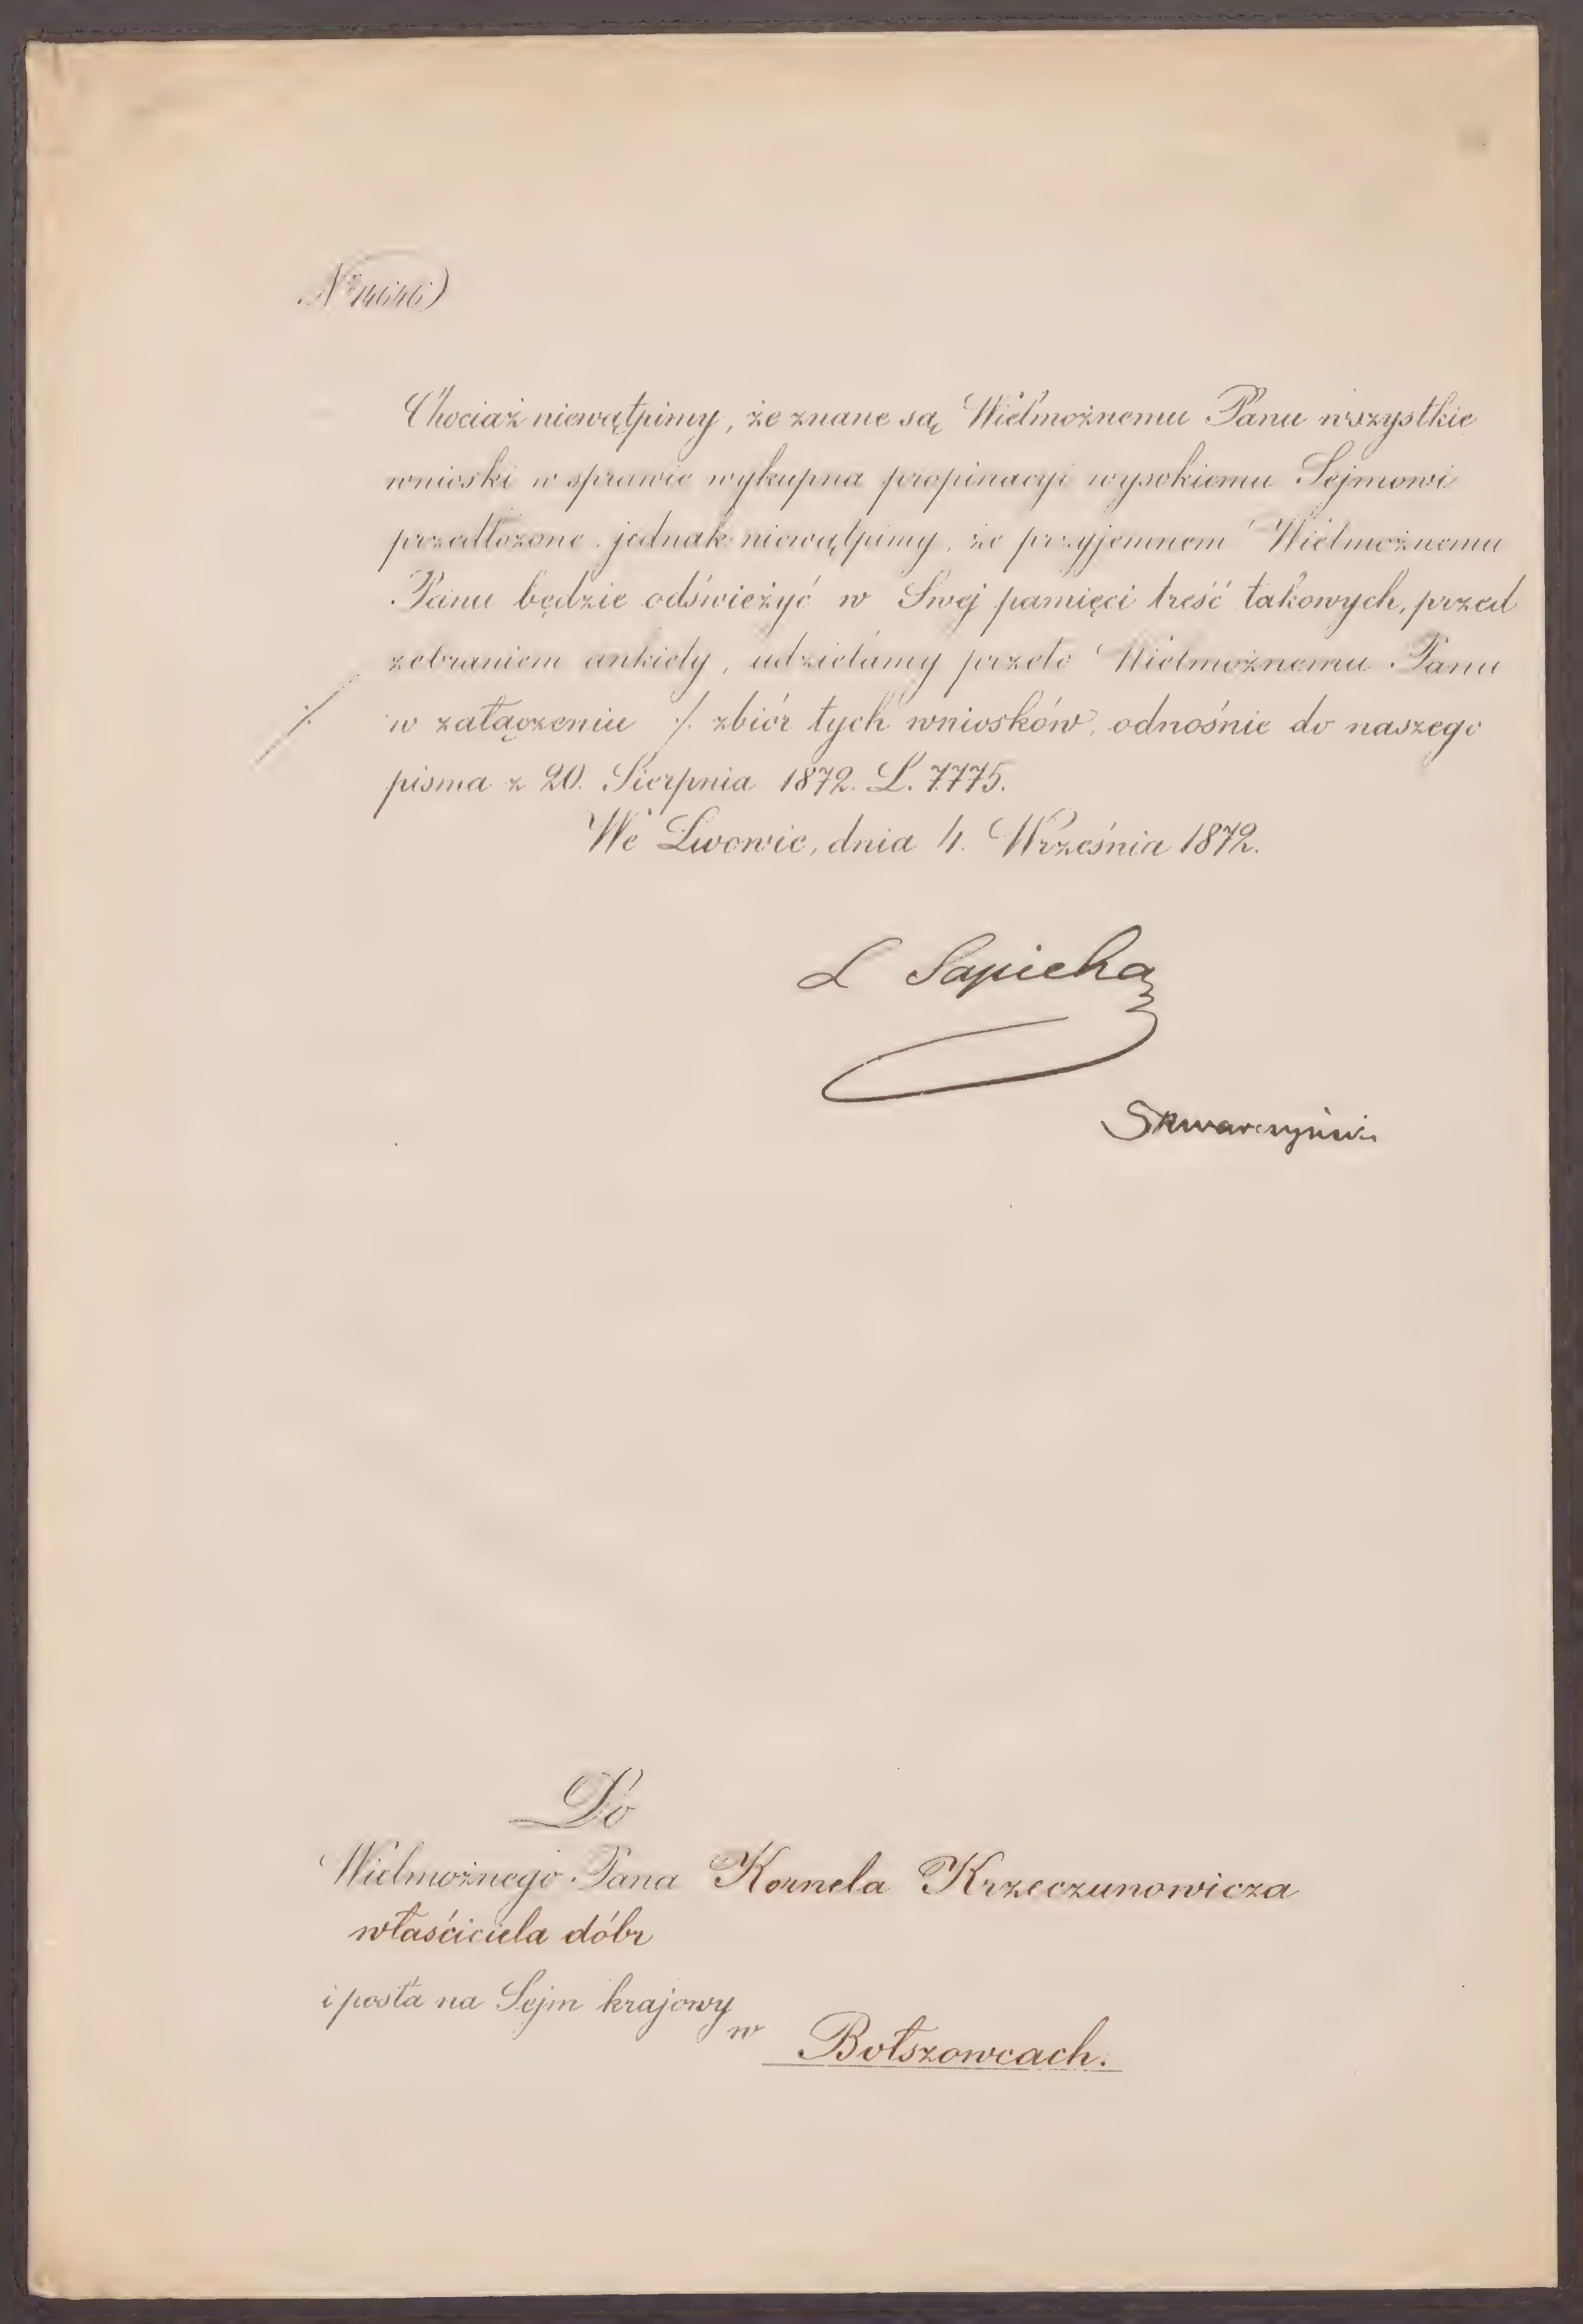 Chociaż niewątpimy, że znane są Wielmożnemu Panu wszystkie
wnioski w sprawie wykupna propinacyi wysokiemu Sejmowi
przedłożone, jednak niewątpimy, że przyjemnem Wielmożnemu
Panu będzie odświeżyć w Swej pamięci treść takowych, przed
zebraniem ankiety, udzielamy przeto Wielmożnemu Panu
w załączeniu ./. zbiór tych wniosków, odnośnie do naszego
pisma z 20. Sierpnia 1872. L. 7775.
We Lwowie, dnia 4. Września 1872.
L Sapieha
Skwarczyński
Do
Wielmożnego Pana Kornela Krzeczunowicza
właściciela dóbr
i posła na Sejm krajowy
w Bołszowcach.